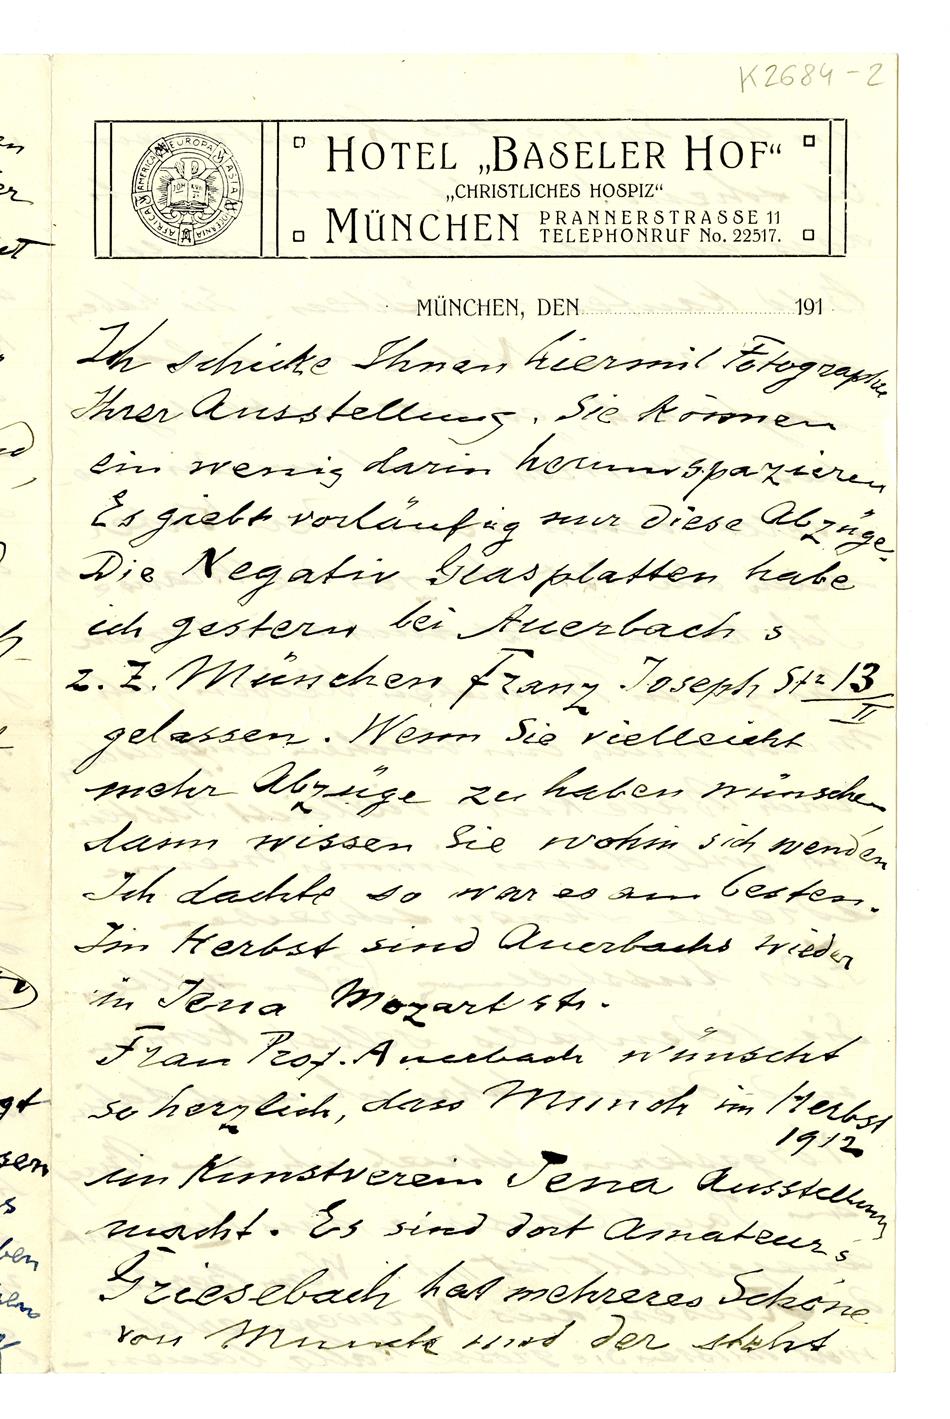 K2684-2
HOTEL „BASELER HOF“
„CHRISTLICHES HOSPIZ“
MÜNCHEN PRANNERSTRASSE 11
TELEPHONRUF No. 22517.
AMERICA EUROPA ASIA AFRICA
MÜNCHEN, DEN 191
Ich schicke Ihnen hiermit Fotographie
Ihrer Ausstellung. Sie können
ein wenig darin herumspazieren
Es giebt vorläufig nur diese Abzüge.
Die Negativ Glasplatten habe
ich gestern bei Auerbach s
z. Z. München Franz Joseph Str 13
II
gelassen. Wenn Sie vielleicht
mehr Abzüge zu haben wünschen
dann wissen Sie wohin sich wenden
Ich dachte so war es am besten.
Im Herbst sind Auerbachs wieder
in Jena Mozartstr.
Frau Prof. Auerbach wünscht
so herzlich, dass Munch im Herbst
1912
im Kunstverein Jena Ausstellung
macht. Es sind dort Amateur's
Griesebach hat mehreres Schöne
von Munch und der steht